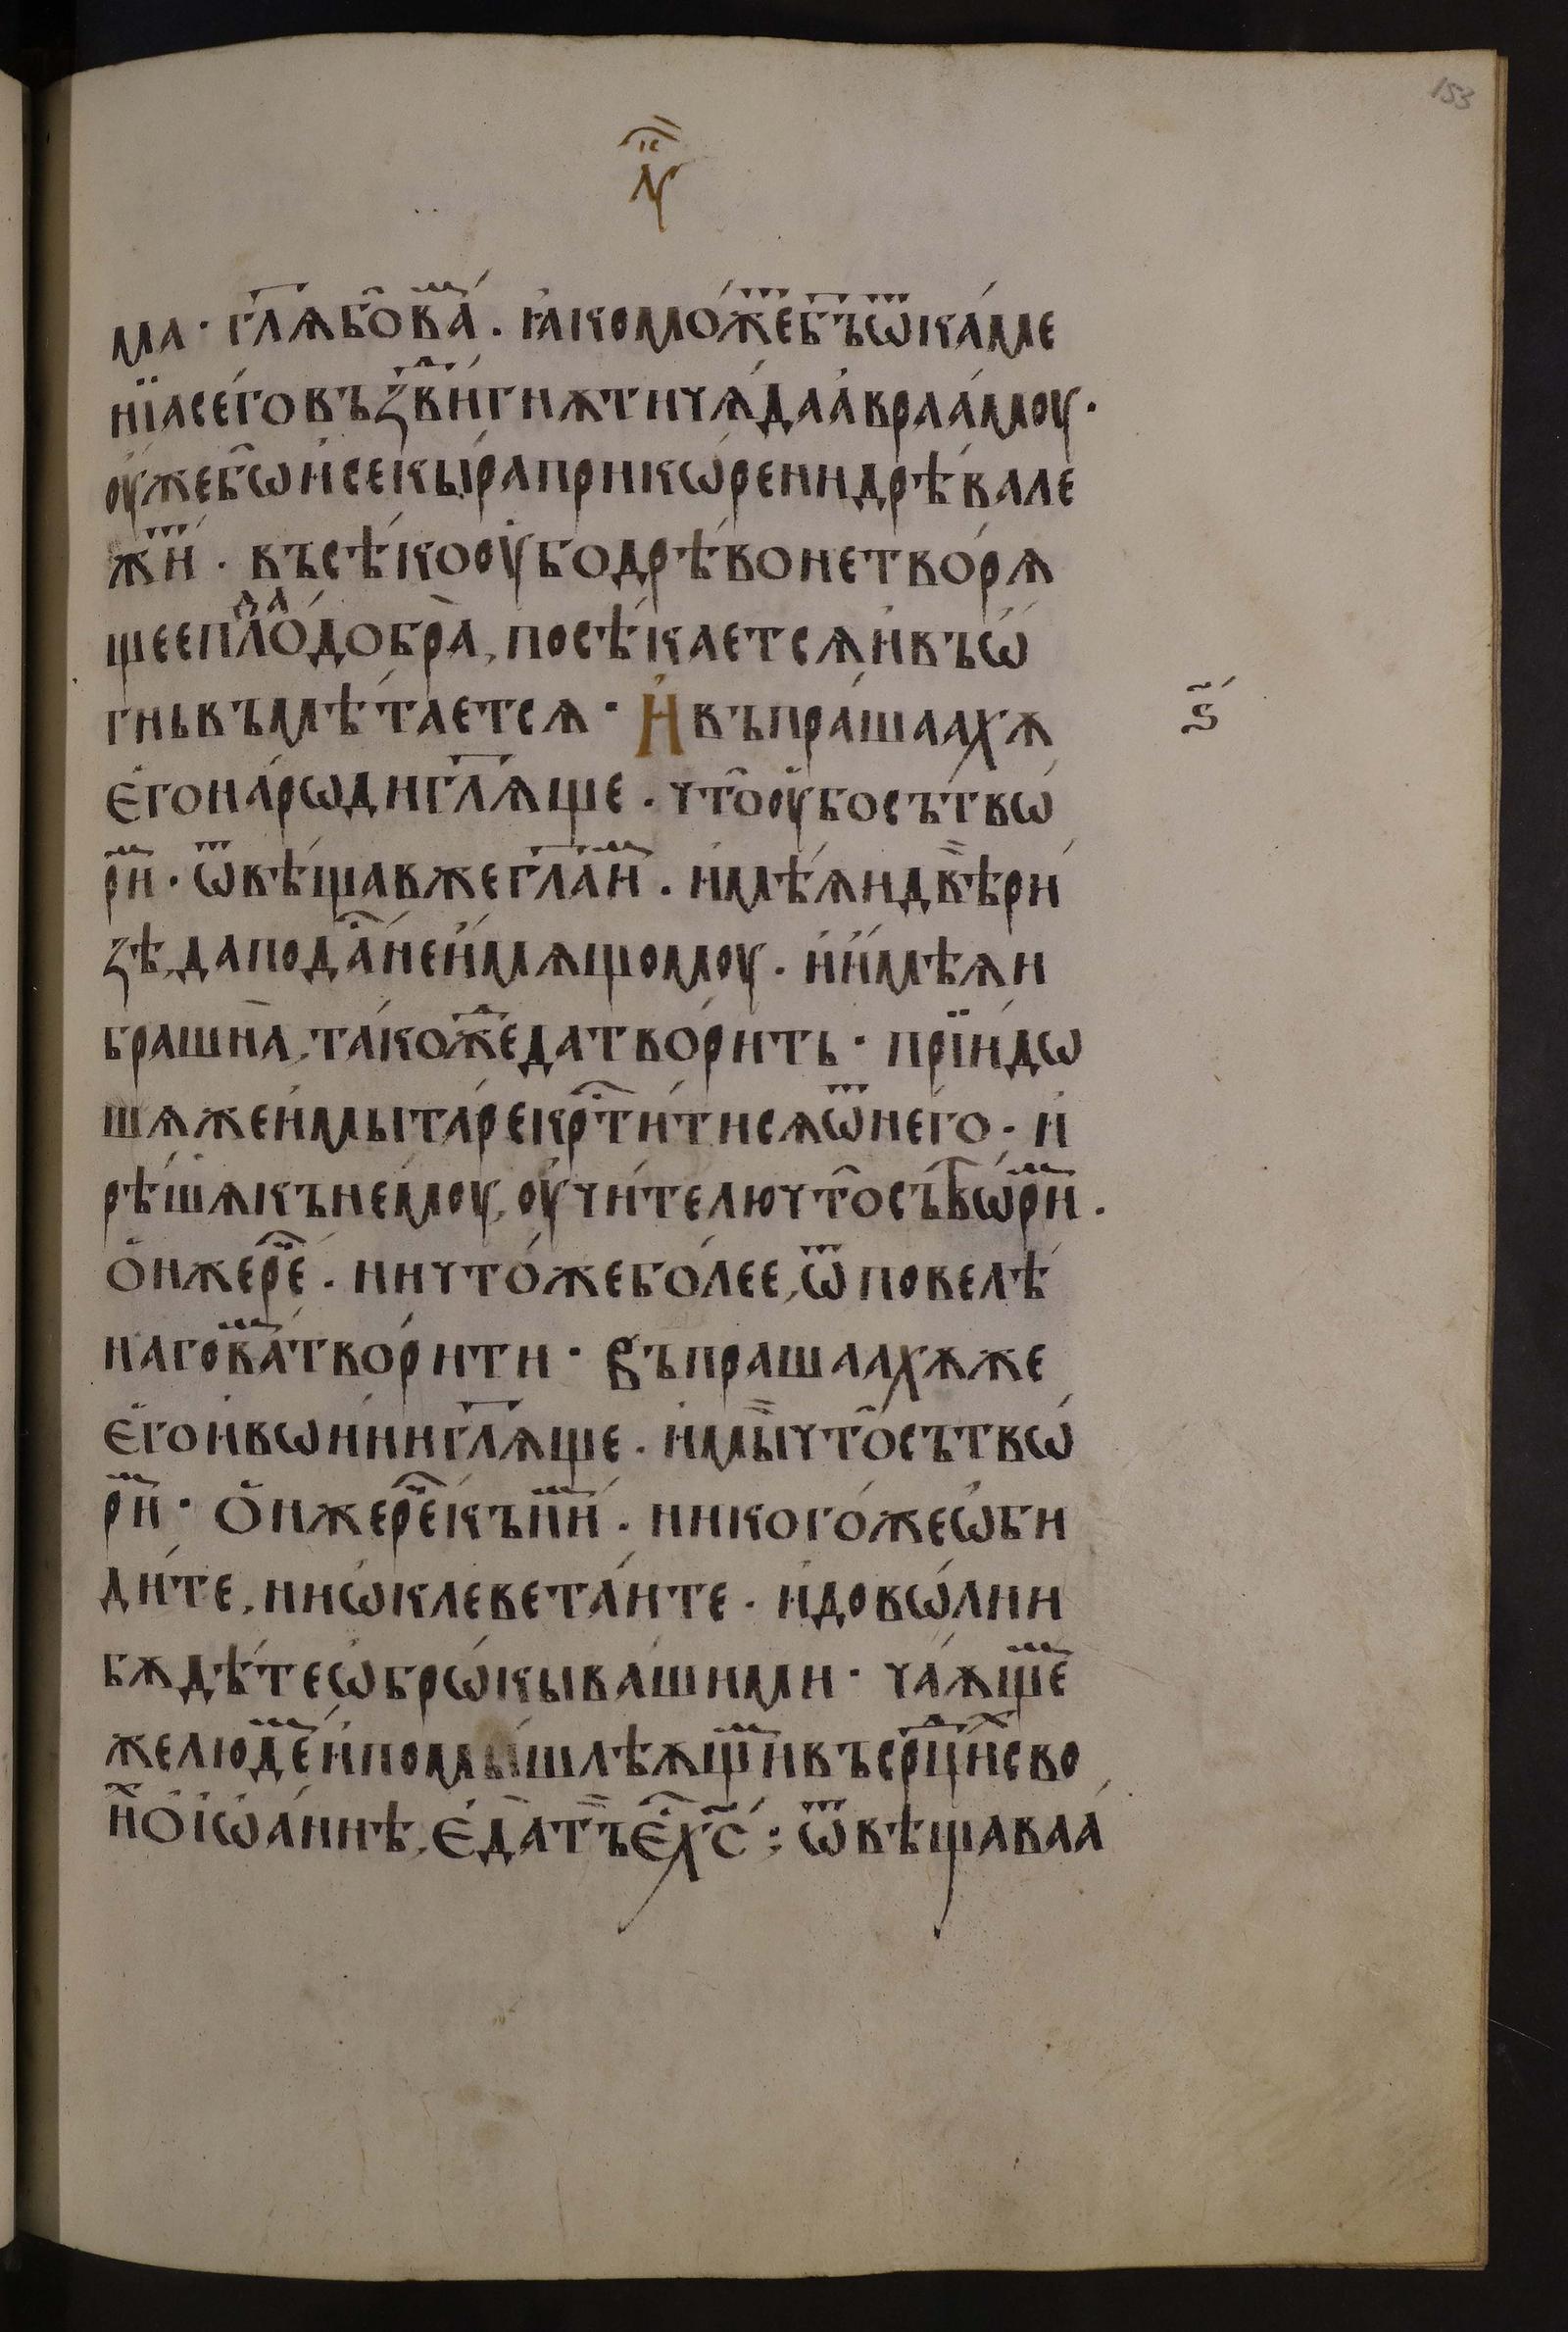 153
л҃ꙋк
ма · гл҃ѧбо̑ва́м . ꙗ҆комо́жетб҃ъѿка́ме
нїасего́въꙁдви́гнѫтичѧ́даа҆враа́мꙋ ·
оу҆жебѡ̑и҆секы́раприкѡ́ренидрѣ́вале
жи́т . въсѣ́кооу҆бодрѣ́вонетворѧ́
щеепло́дадобра̀, посѣ́каетсѧи҆въѡ҆
гньвъмѣ́таетсѧ · И҆въпра́шаахѫ
ѕ҃
е҆гона́рѡдигл҃ѧще . что̑оу҆босътвѡ́
ри́м · ѿвѣ́щавжегл҃аи́м . и҆мѣ́ѧидвѣ̀ри
ꙁѣ, даподаⷭ҇не́и҆мѧщомоу . и҆и҆мѣ́ѧи
брашна̀, та́кождедатвори́ть · прїи́дѡ
шѧжеи҆мыта́рекрⷭ҇ти́тисѧѿнего̀ . и҆
рѣ́шѧкънемоу̀, оу҆чи́телючто̑сътвѡри́м .
ѻ҆нжереⷱ҇ . ничто́жебо́лее, ѿповелѣ́
нагова́мтвори́ти · Въпрашаахѫже
е҆гои҆вѡ́инигл҃ѧще . и҆мы̀что̑сътвѡ́
ри́м · ѻ҆нжереⷱ҇къни́м . никого́жеѡ҆би
ди́те, ниѡ҆клевета́ите . и҆довѡ́лни
бѫдѣ́теѡ҆брѡ́кыва́шими · ча́ѫщем
желюдеми҆помышлѣ́ѫщимвъсрⷣци́хсво
и́хѻ҆і҆ѡа́ннѣ, е҆да̀тъ̀е҆́хс҃ : ѿвѣ́щаваа́